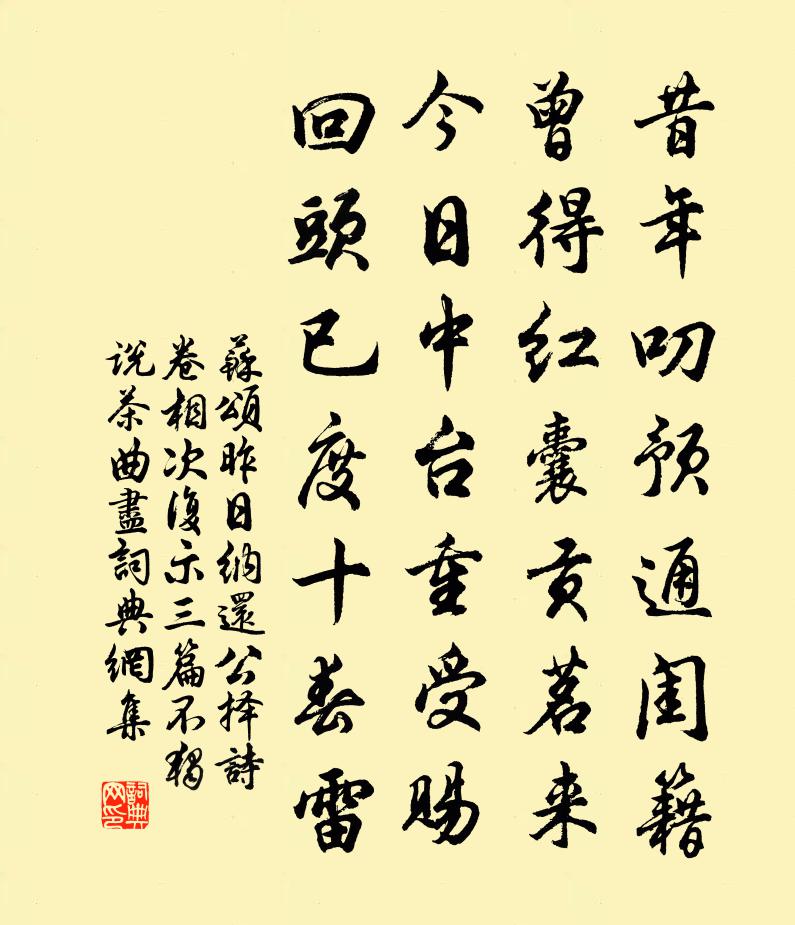 昔年叨預通闺籍
曾得红囊贡茗来
今日中台重受赐
回頭已度十春雷
蘇頌昨日纳還公择詩
卷相次復示三篇不獨
说茶曲盡詞典網集
詞典网印